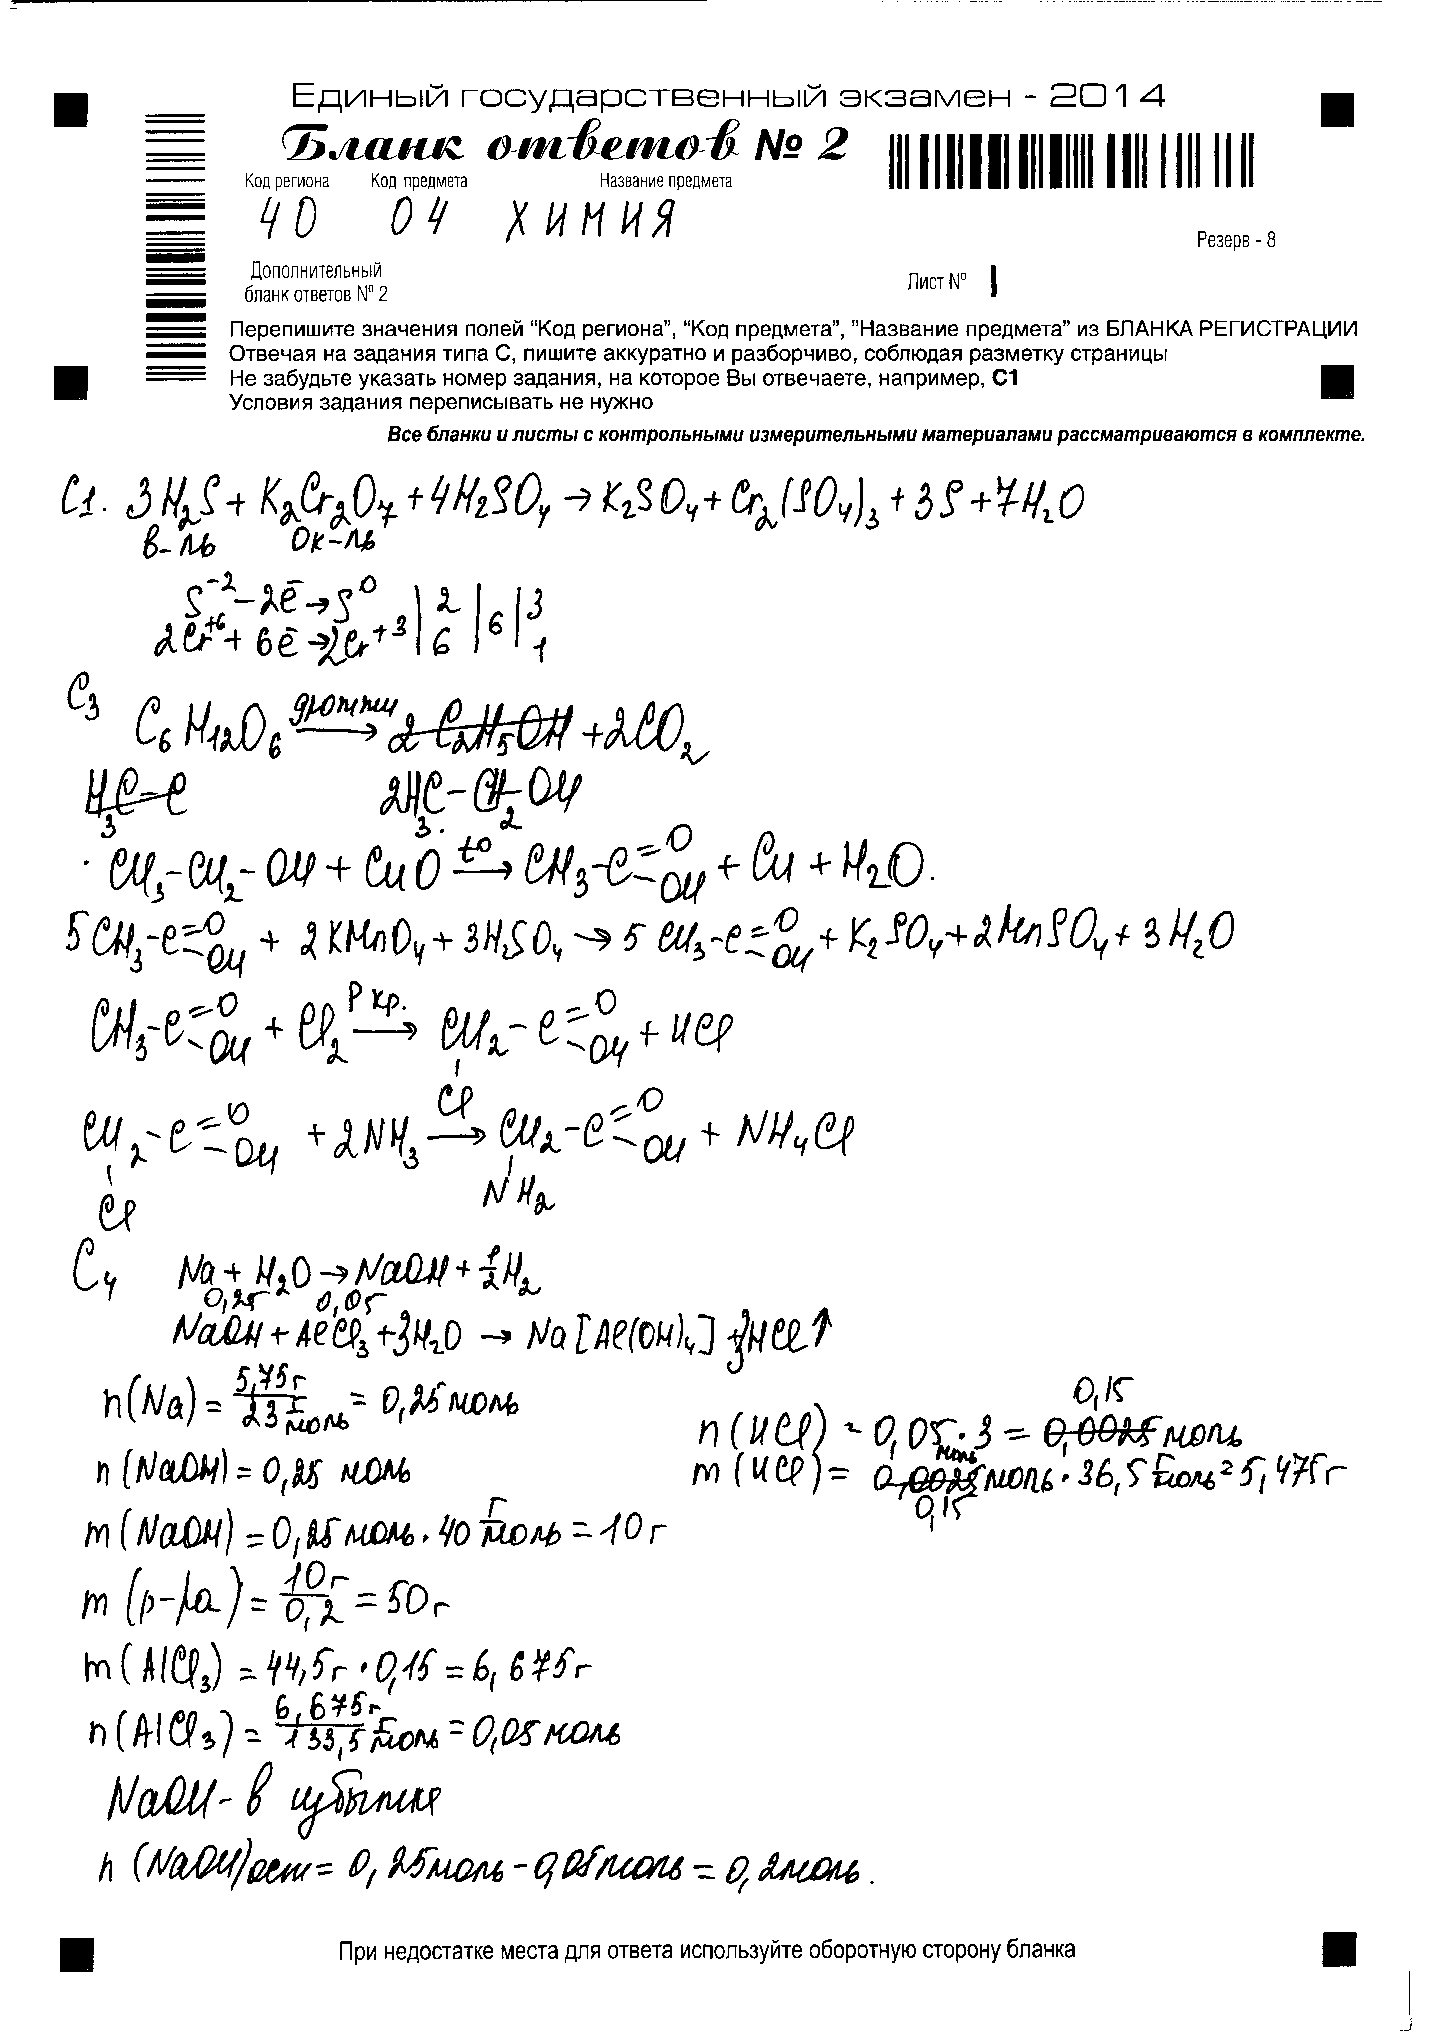 Единый государственный экзамен - 2014
Бланк ответов № 2
Код региона Код предмета Название предмета
40 04 ХИМИЯ
Резерв - 8
Дополнительный
бланк ответов № 2
Лист № 1
Перепишите значения полей "Код региона", "Код предмета", "Название предмета" из БЛАНКА РЕГИСТРАЦИИ
Отвечая на задания типа С, пишите аккуратно и разборчиво, соблюдая разметку страницы
Не забудьте указать номер задания, на которое Вы отвечаете, например, С1
Условия задания переписывать не нужно
Все бланки и листы с контрольными измерительными материалами рассматриваются в комплекте.
С1. 3H₂S + K₂Cr₂O₇ + 4H₂SO₄ → K₂SO₄ + Cr₂(SO₄)₃ + 3S + 7H₂O
в-ль ок-ль
S⁻² - 2ē → S⁰ | 2 | 6 | 3
2Cr⁺⁶ + 6ē → 2Cr⁺³ | 6 | | 1
С3
C₆H₁₂O₆ дрожжи → 2 C₂H₅OH + 2CO₂
H₃C-C 2H₃C-CH₂-OH
· CH₃-CH₂-OH + CuO t⁰ → CH₃-C=O-OH + Cu + H₂O.
5CH₃-C=O-OH + 2KMnO₄ + 3H₂SO₄ → 5 CH₃-C=O-OH + K₂SO₄ + 2MnSO₄ + 3H₂O
CH₃-C=O-OH + Cl₂ P кр. → CH₂-C=O-OH + HCl
Cl
CH₂-C=O-OH + 2NH₃ → CH₂-C=O-OH + NH₄Cl
Cl NH₂
С4 Na + H₂O → NaOH + ½H₂
0,25 0,05
NaOH + AlCl₃ + 3H₂O → Na[Al(OH)₄] + 3HCl↑
n(Na) = 5,75г / 23 г/моль = 0,25 моль
n(NaOH) = 0,25 моль
m(NaOH) = 0,25 моль · 40 г/моль = 10 г
m(р-ра) = 10г / 0,2 = 50г
m(AlCl₃) = 44,5г · 0,15 = 6,675г
n(AlCl₃) = 6,675г / 133,5 г/моль = 0,05 моль
NaOH - в избытке
n(NaOH)ост = 0,25моль - 0,05моль = 0,2моль.
0,15
n(HCl) = 0,05 · 3 = 0,0025 моль
моль
m(HCl) = 0,0025 моль · 36,5 г/моль = 5,475г
0,15
При недостатке места для ответа используйте оборотную сторону бланка